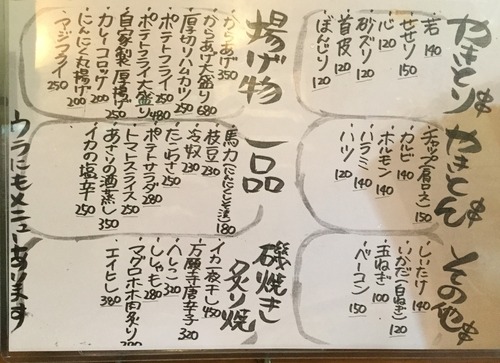 やきとり串
若 140
せせり 150
心 120
砂ズリ 120
首皮 120
ぼんじり 120
やきとん串
チャップ(肩ロース) 150
カルビ 140
ホルモン 140
ハラミ 140
ハツ 120
その他串
しいたけ 140
いかだ(白ねぎ) 120
玉ねぎ 100
ベーコン 150
揚げ物
からあげ 350
からあげ大盛り 680
厚切りハムカツ 250
ポテトフライ 250
ポテトフライ大盛り 480
自家製厚揚げ 250
カレーコロッケ 200
にんにく丸揚げ 200
アジフライ 250
一品
馬力(にんにくしょうゆ漬) 180
枝豆 230
冷奴 230
たこわさ 250
ポテトサラダ 280
トマトスライス 250
あさりの酒蒸し 350
イカの塩辛 250
磯焼き
炙り焼
イカ一夜干し 450
万願寺唐辛子 320
へしこ 320
ししゃも 280
マグロホホ肉炙り
エイヒレ 380
ウラにもメニューあります